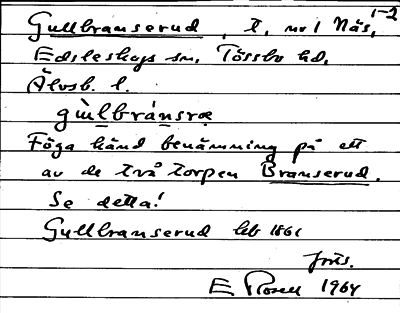 Gullbranserud, t, nr 1 Näs, 1-2
Edsleskogs sn, Tössbo hd,
Älvsb. l.
gùlbránsræ
Föga känd benämning på ett
av de två torpen Branserud.
Se detta!
Gullbranserud hfb 1861
forts.
E Rosell 1964